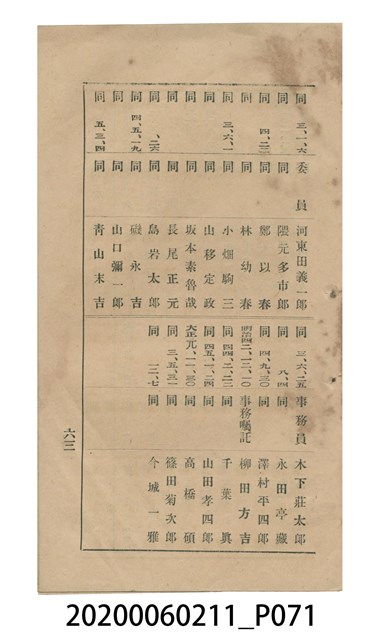 同 三、一、六 委員 河東田義一郎
同 同 隈元多市郎
同 四、二 同 鄭以春
同 同 林幼春
同 三、六、一 同 小畑駒三
同 同 山移定政
同 同 坂本素魯哉
同 同 長尾正元
同 、二六 同 島岩太郎
同 四、五、一九 同 磯永吉
同 同 山口彌一郎
同 五、三、四 同 青山末吉
同 三、六、二五 事務員 木下莊太郎
同 八、四 同 永田亭藏
同 四、九、三〇 同 澤村平四郎
明治四二、一二、一〇 事務囑託 柳田方吉
同 四四、二、二三 同 千葉眞
同 四五、一、二四 同 山田孝四郎
大正元、一一、三〇 同 高橋碩
同 三、五、三一 同 篠田菊次郎
同 一二、七 同 今城一雅
六三
20200060211_P071